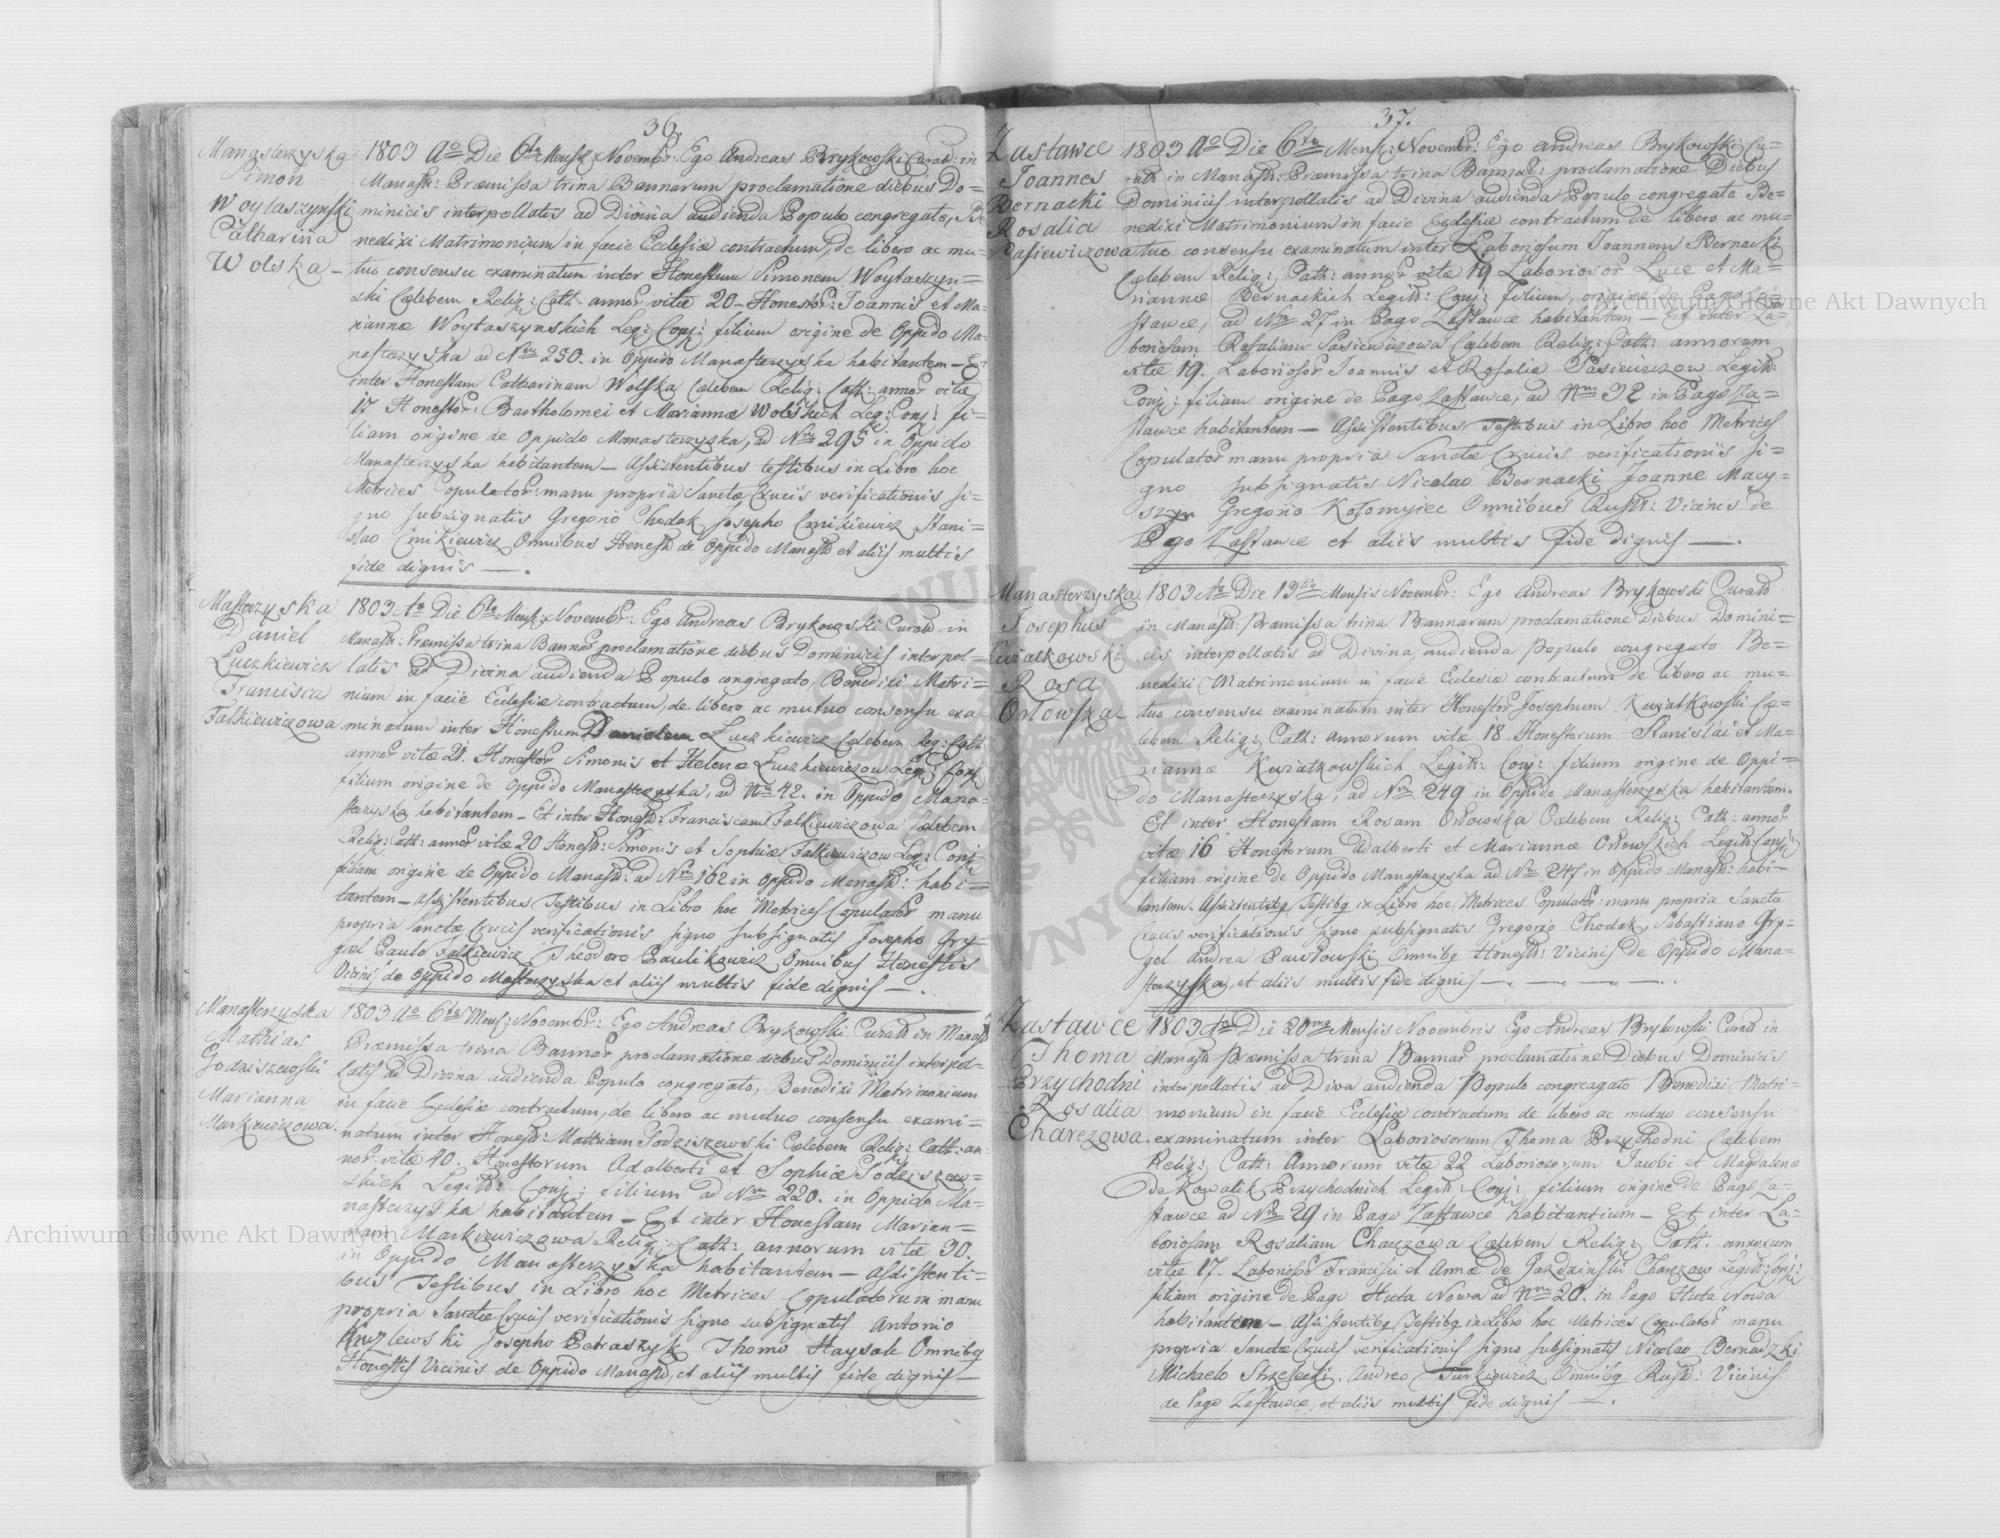 36.
Manasterzyska
Simon
Woytaszynski
Catharina
Wolska –
1803 Aº Die 6ta Mensis Novembr: Ego Andreas Brykowski Curat: in
Manast: Præmissa trina Bannarum proclamatione diebus Do=
minicis interpollatis ad Divina audienda Populo congregato, Be
nedixi Matrimonium in facie Ecclesiæ contractum, de libero ac mu=
tuo consensu examinatum inter Honestum Simonem Woytaszyn=
ski Cælebem Relig: Cath: annor vitæ 20 – Honestor: Joannis et Ma=
riannæ Woytaszynskich Leg: Conj: filium origine de Oppido Ma=
nasterzyska ad Nrm 250. in Oppido Manasterzyska habitantem – Et
inter Honestam Catharinam Wolska Cælebem Relig: Cath: annor vitæ
17 Honestor: Bartholomei et Mariannæ Wolskich Leg: Conj: fi=
liam origine de Oppido Manasterzyska, ad Nrm 295 in Oppido
Manasterzyska habitantem – Assistentibus testibus in Libro hoc
Metrices Copulator: manu propria Sanctæ Crucis verificationis si=
gno subsignatis Gregorio Chodak Josepho Cmikiewicz Stani=
slao Cmikiewicz Omnibus Honest: de Oppido Manast: et aliis multis
fide dignis –.
Masterzyska
Daniel
Luczkiewicz
Francisca
Falkiewiczowa
1803 Aº Die 6ta Mens: Novembr: Ego Andreas Brykowski Curat: in
Manast: Præmissa trina Bannar proclamatione diebus Dominicis interpol=
latis ad Divina audienda Populo congregato, Benedixi Matri=
nium in facie Ecclesiæ contractum, de libero ac mutuo consensu exa=
minatum inter Honestum Danielem Luczkiewicz Cælebem Relig: Cath:
annor vitæ 21. Honestor Simonis et Helenæ Luczkiewiczow Leg: Conj:
filium origine de Oppido Manasterzyska, ad Nrm 42. in Oppido Mana=
starzyska habitantem – Et inter Honest: Franciscam Falkiewiczowa Cælebem
Relig: Cath: annor vitæ 20 Honest: Simonis et Sophiæ Falkiewiczow Leg: Conj:
filiam origine de Oppido Manast: ad Nrm 162 in Oppido Manast: habi=
tantem – Assistentibus Testibus in Libro hoc Metrices Copulator manu
propria Sanctæ Crucis verificationis signo subsignatis Josepho Gry=
gel Paulo Falkiewicz, Theodoro Paulikowicz Omnibus Honestis
Vicinis de Oppido Masterzyska et aliis multis fide dignis –.
Manasterzyska
Mathias
Godziszewski
Marianna
Markiewiczowa.
1803 Aº 6ta Mens: Novembr: Ego Andreas Brykowski Curat: in Manast
Præmissa trina Bannar proclamatione diebus Dominicis interpol=
latis ad Divina audienda Populo congregato, Benedixi Matrimonium
in facie Ecclesiæ contractum, de libero ac mutuo consensu exami=
natum inter Honest: Mathiam Godziszewski Cælebem Relig: Cath: an=
nor: vitæ 40. Honestorum Adalberti et Sophiæ Godziszew=
skich Legit: Conj: filium ad Nrm 220. in Oppido Ma=
nasterzyska habitantem – Et inter Honestam Marian=
nam Markiewiczowa Relig: Cath: annorum vitæ 30.
in Oppido Manasterzyska habitantem – Assistenti=
bus Testibus in Libro hoc Metrices Copulatorum manu
propria Sanctæ Crucis verificationis signo subsignatis Antonio
Josepho Petraszyk Thoma Haysak Omnibq
Honestis Vicinis de Oppido Manast:, et aliis multis fide dignis –
37.
Zastawce
Joannes
Bernacki
Rosalia
Pasiewiczowa
1803 Aº Die 6ta Mens: Novembr: Ego Andreas Brykowski Cu=
rat: in Manast: Præmissa trina Bannar: proclamatione Diebus
Dominicis interpollatis ad Divina audienda Populo congregato Be=
nedixi Matrimonium in facie Ecclesiæ contractum de libero ac mu=
tuo consensu examinatum inter Laboriosum Joannem Bernacki
Cælebem Relig: Cath: annor vitæ 19 Laboriosor Lucæ et Ma=
riannæ Bernackich Legit: Conj: filium, origine de Pago Za=
stawce, ad Nrm 27 in Pago Zastawce habitantem – Et inter La=
boriosam Rosaliam Pasiewiczowa Cælebem Relig: Cath: annorum
vitæ 19. Laboriosor Joannis et Rosaliæ Pasiewiczow Legit:
Conj: filiam origine de Pago Zastawce, ad Nrm 32 in Pago Za=
stawce habitantem – Assistentibus Testibus in Libro hoc Metrices
Copulator manu propria Sanctæ Crucis verificationis si=
gno subsignatis Nicolao Bernacki Joanne Macy=
szyn Gregorio Kołomyiec Omnibus Rust: Vicinis de
Pago Zastawce et aliis multis fide dignis –.
Manasterzyska
Josephus
Kwiatkowski
Rosa
Orłowska –
1803 Aº Die 13tia Mensis Novembr: Ego Andreas Brykowski Curat
in Manast: Præmissa trina Bannarum proclamatione Diebus Domini=
cis interpollatis ad Divina, audienda Populo congregato Be=
nedixi Matrimonium in facie Eclesiæ contractum de libero ac mu=
tuo consensu examinatum inter Honestor Josephum Kwiatkowski Cæ=
lebem Relig: Cath: annorum vitæ 18 Honestorum Stanislai et Ma=
riannæ Kwiatkowskich Legit: Conj: filium origine de Oppi=
do Manasterzyska, ad Nrm 249 in Oppido Manasterzyska habitantem.
Et inter Honestam Rosam Orłowska Cælebem Relig: Cath: annor
vitæ 16 Honestorum Adalberti et Mariannæ Orłowskich Legit: Conj:
filiam origine de Oppido Manastarzyska ad Nrm 247 in Oppido Manast: habi=
tantem. Assistentibq Testibq in Libro hoc Metrices Copulator: manu propria Sanctæ
Crucis verificationis signo subsignatis Gregorio Chodak Sebastiano Gry=
gel Andrea Pawłowski Omnibq Honest: Vicinis de Oppido Mana=
starzyska, et aliis multis fide dignis –.
Zastawce
Thoma
Przychodni
Rosalia
Charezowa.
1803 Aº Die 20ma Mensis Novembris Ego Andreas Brykowski Curat in
Manast: Præmissa trina Bannar proclamatione Diebus Dominicis
interpollatis ad Diva audienda Populo congreagato Benedixi Matri=
monium in facie Eclesiæ contractum de libero ac mutuo consensu
examinatum inter Laboriosorum Thoma Przychodni Cælebem
Relig: Cath: Annorum vitæ 22 Laboriosorum Jacobi et Magdalenæ
de Kowalik Przychodnich Legit: Conj: filium origine de Pago Za=
stawce ad Nrm 29 in Pago Zastawce habitantium – Et inter La=
boriosam Rosaliam Charezowa Cælebem Relig: Cath. annorum
vitæ 17. Laborioso Francisci et Annæ de Charezow Legit: Conj:
filiam origine de Pago Huta Nowa ad Nrm 20. in Pago Huta Nowa
habitantem – Assistentibq Testibq in Libro hoc Metrices Copulator manu
propria Sanctæ Crucis verificationis signo subsignatis Nicolao Bernadzki
Michaelo Strzelecki. Andreo Turkiewicz Omnibq Rust: Vicinis
de Pago Zastawce, et aliis multis fide dignis –.
Archiwum Główne Akt Dawnych
Archiwum Główne Akt Dawnych